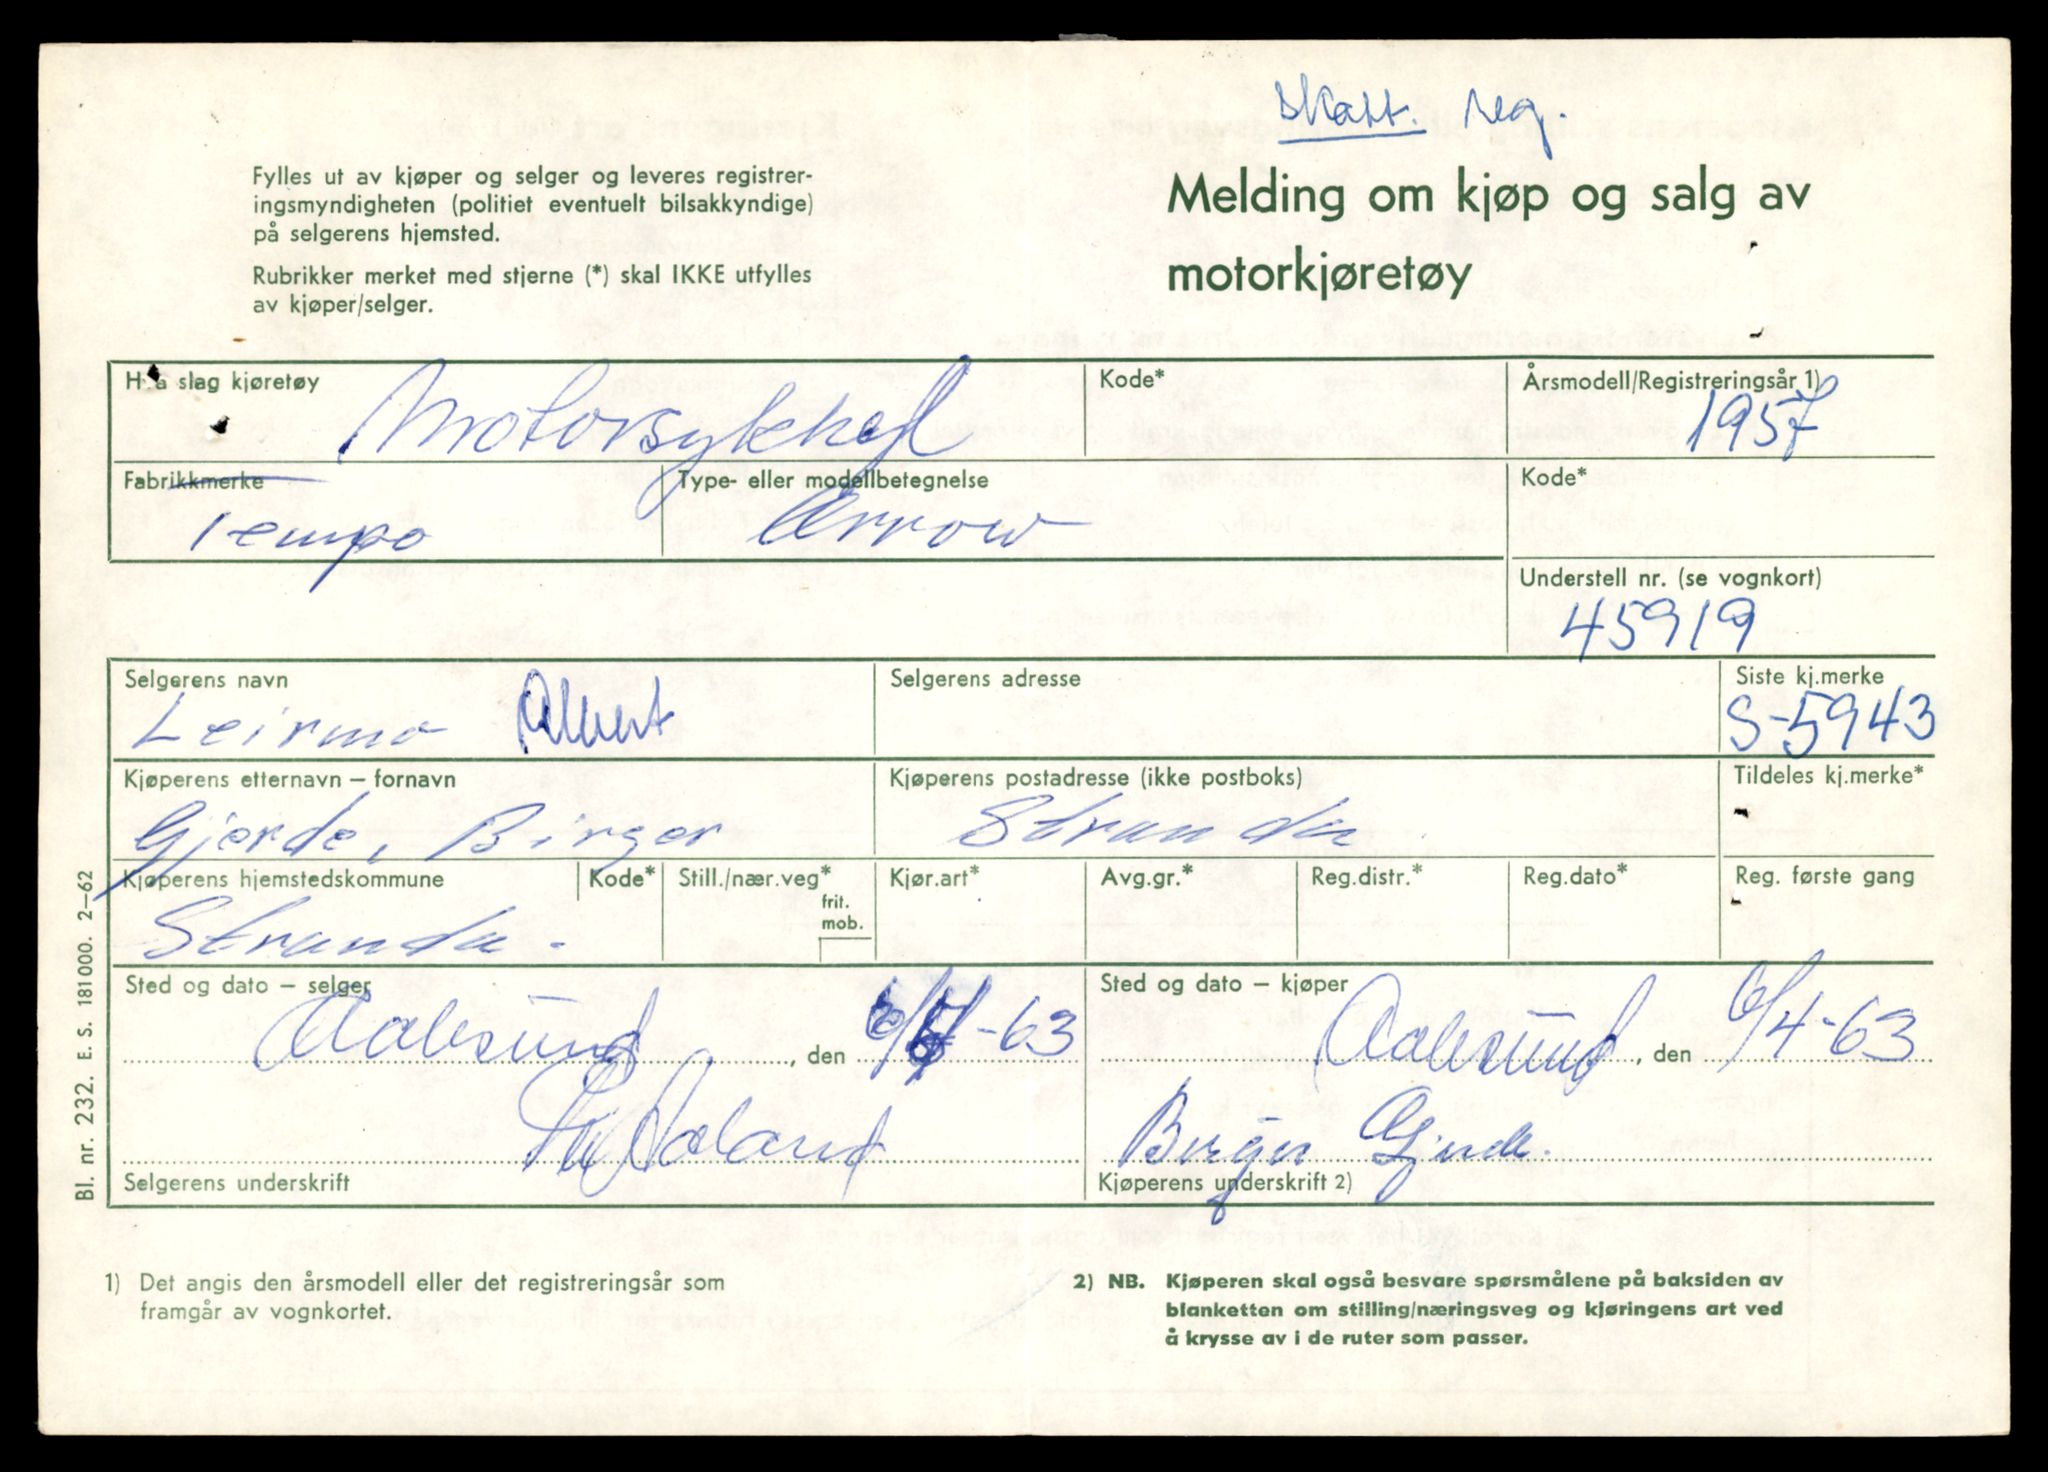 skatt. reg.
Fylles ut av kjøper og selger og leveres registrer-
ingsmyndigheten (politiet eventuelt bilsakkyndige)
på selgerens hjemsted.
Rubrikker merket med stjerne (*) skal IKKE utfylles
av kjøper/selger.
Melding om kjøp og salg av
motorkjøretøy
H.a slag kjøretøy Kode* Årsmodell/Registreringsår 1)
Motorsykkel 1957
Fabrikkmerke Type- eller modellbetegnelse Kode*
Tempo Arrow
Understell nr. (se vognkort)
45919
Selgerens navn Selgerens adresse Siste kj.merke
Leirmo Albert S-5943
Kjøperens etternavn – fornavn Kjøperens postadresse (ikke postboks) Tildeles kj.merke*
Gjerde, Birger Stranda
Kjøperens hjemstedskommune Kode* Still./nær.veg* Kjør.art* Avg.gr.* Reg.distr.* Reg.dato* Reg. første gang
frit.
mob.
Stranda.
Sted og dato – selger Sted og dato – kjøper
Aalesund, den 6/4-63 Aalesund, den 6/4-63
Aaland Birger Gjerde.
Selgerens underskrift Kjøperens underskrift 2)
1) Det angis den årsmodell eller det registreringsår som
framgår av vognkortet.
2) NB. Kjøperen skal også besvare spørsmålene på baksiden av
blanketten om stilling/næringsveg og kjøringens art ved
å krysse av i de ruter som passer.
Bl. nr. 232. E. S. 181000. 2–62